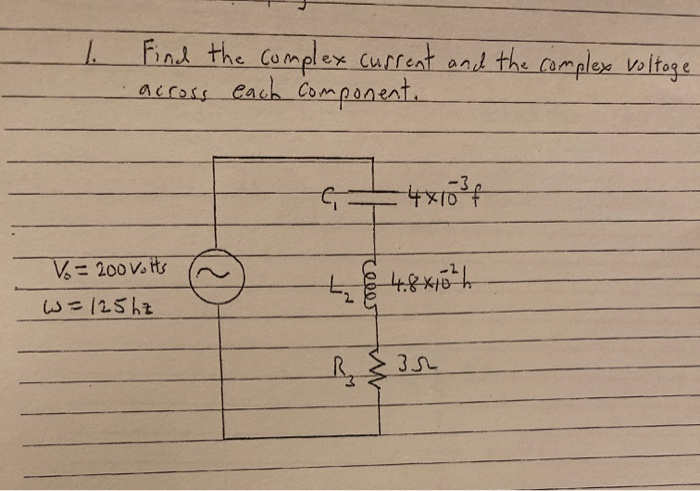 1. Find the complex current and the complex voltage
across each component.
C₁ 4x10⁻³f
V₀ = 200 Volts
L₂ 4.8x10⁻²h
ω = 125hz
R₃ 3Ω